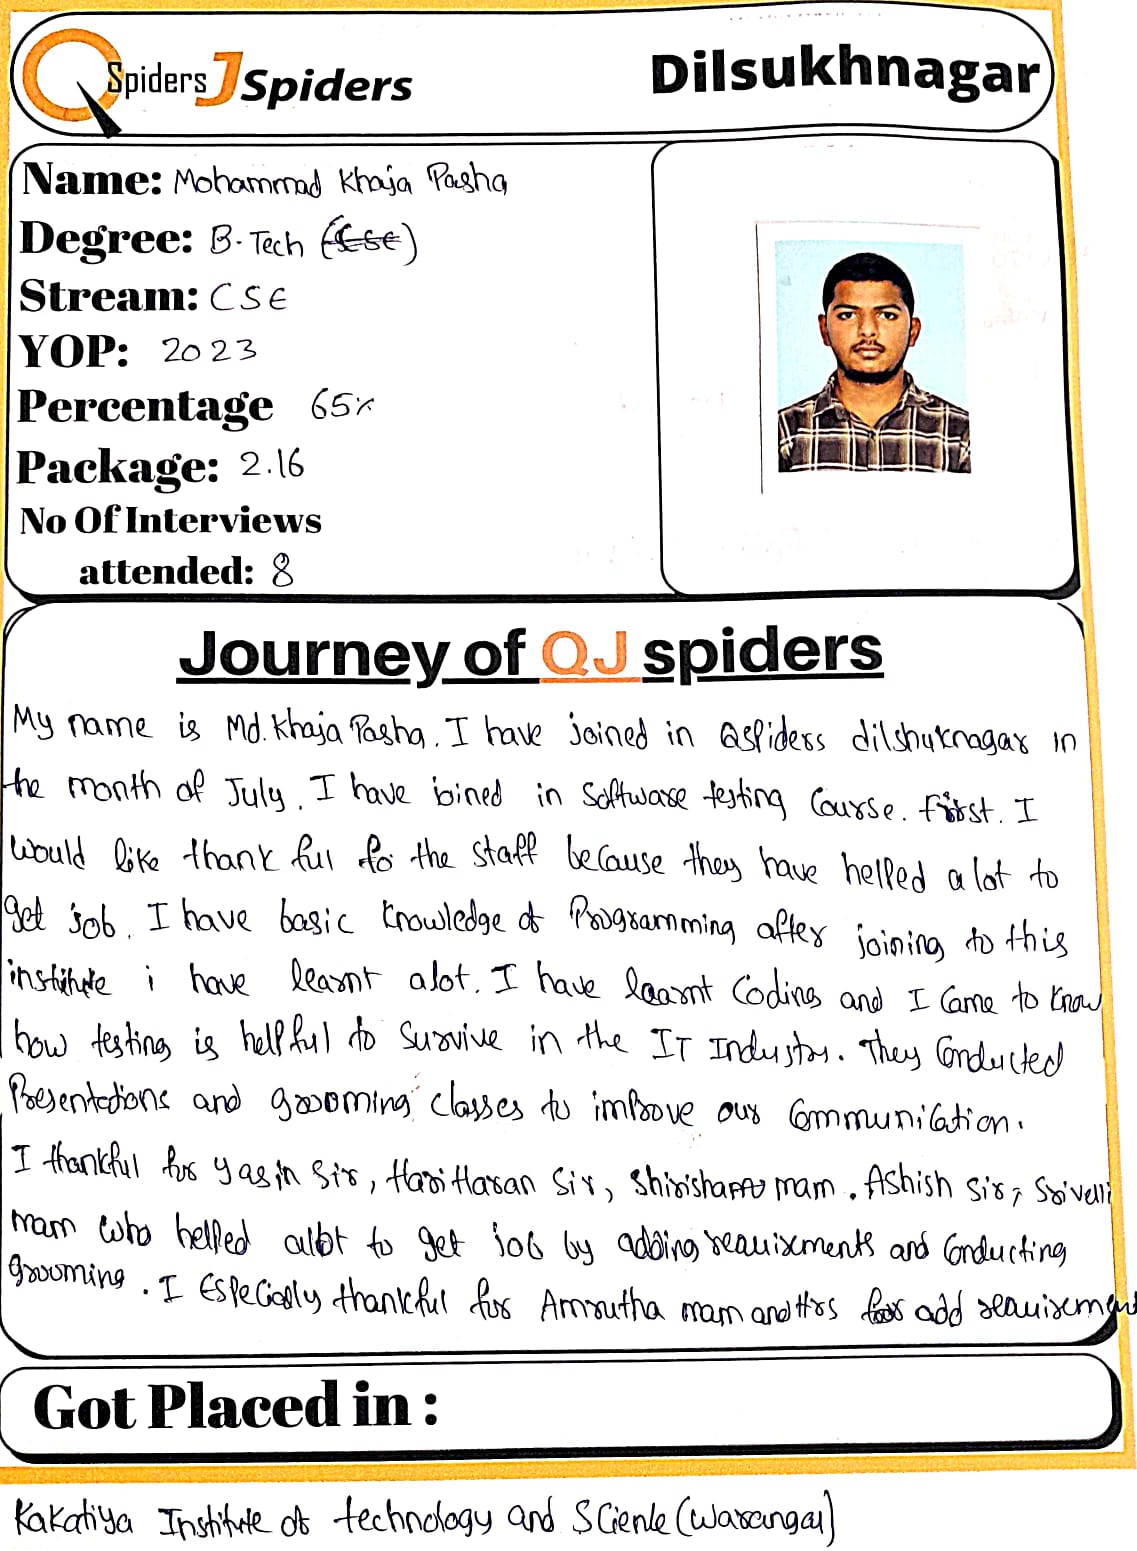 QSpiders JSpiders
Dilsukhnagar
Name: Mohammad Khaja Pasha
Degree: B.Tech (CSE)
Stream: CSE
YOP: 2023
Percentage 65%
Package: 2.16
No Of Interviews
attended: 8
Journey of QJ spiders
My name is Md. Khaja Pasha. I have joined in Qspiders dilshuknagar in
the month of July. I have joined in Software testing Course. first. I
would like thank ful to the staff because they have helped a lot to
get job. I have basic knowledge of Programming after joining to this
institute i have learnt alot. I have learnt Coding and I Came to know
how testing is helpful to Survive in the IT Industry. They Conducted
Presentations and grooming classes to improve our Communication.
I thankful for yasin Sir, Hari Haran Sir, Shirisha mam. Ashish Sir, Srivelli
mam who helped alot to get job by adding requirments and Conducting
grooming. I Especially thankful for Amrutha mam and Hrs for add requirement
Got Placed in :
Kakatiya Institute of technology and Science (Warangal)